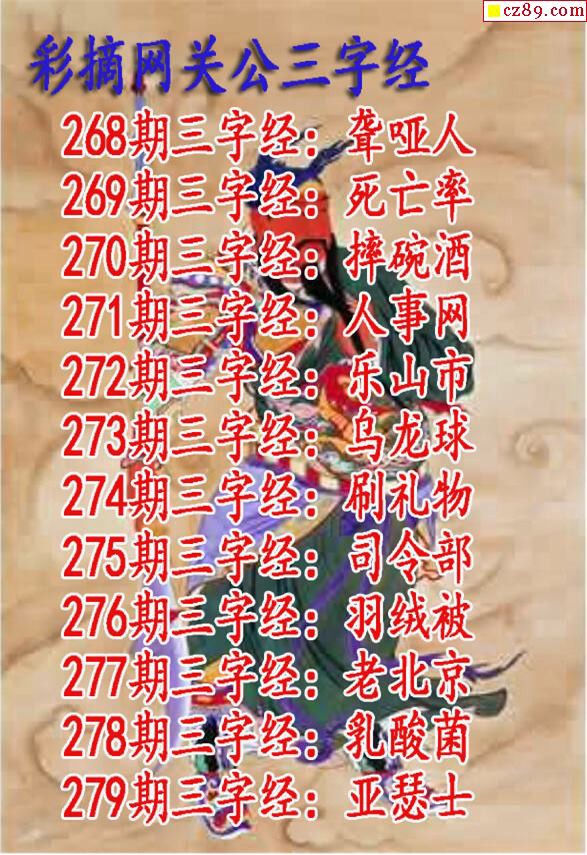 cz89.com
彩摘网关公三字经
268期三字经：聋哑人
269期三字经：死亡率
270期三字经：摔碗酒
271期三字经：人事网
272期三字经：乐山市
273期三字经：乌龙球
274期三字经：刷礼物
275期三字经：司令部
276期三字经：羽绒被
277期三字经：老北京
278期三字经：乳酸菌
279期三字经：亚瑟士